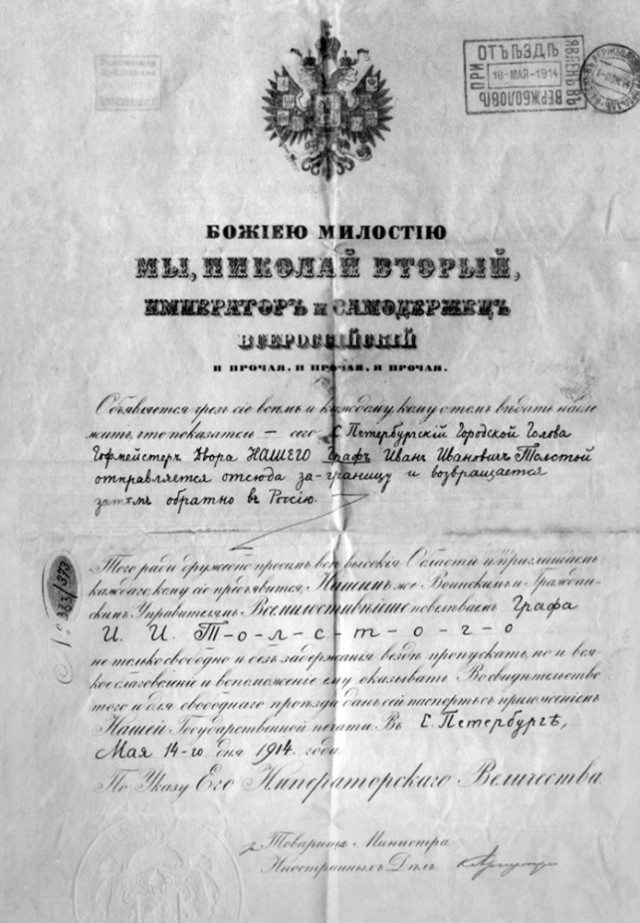 ПРИ ОТЪѢЗДѢ ЯВЛЕНЪ ВЪ
18-МАЯ-1914
ВЕРЖБОЛОВѢ
БОЖІЕЮ МИЛОСТІЮ
МЫ, НИКОЛАЙ ВТОРЫЙ,
ИМПЕРАТОРЪ и САМОДЕРЖЕЦЪ
ВСЕРОССІЙСКІЙ
И ПРОЧАЯ, И ПРОЧАЯ, И ПРОЧАЯ.
Объявляется чрезъ сіе всѣмъ и каждому, кому о томъ вѣдать надле
житъ, что показатель — сего С. Петербургскій Городской Голова
Гофмейстеръ Двора НАШЕГО Графъ Иванъ Ивановичъ Толстой
отправляется отсюда за-границу и возвращается
затѣмъ обратно въ Россію.
Того ради дружебно просимъ всѣ высокія Области и приглашаемъ
каждаго кому сіе предъявится; Нашимъ же Воинскимъ и Граждан-
скимъ Управителямъ Всемилостивѣйше повелѣваемъ Графа
И. И. Т-о-л-с-т-о-г-о
не только свободно и безъ задержанія вездѣ пропускать, но и вся
кое благоволеніе и вспоможеніе ему оказывать. Во свидѣтельство
того и для свободнаго проѣзда данъ сей паспортъ съ приложеніемъ
Нашей Государственной печати. Въ С. Петербургѣ,
Мая 14-го дня 1914 года.
По Указу Его Императорскаго Величества
Товарищъ Министра
Иностранныхъ Дѣлъ
№ 383/373